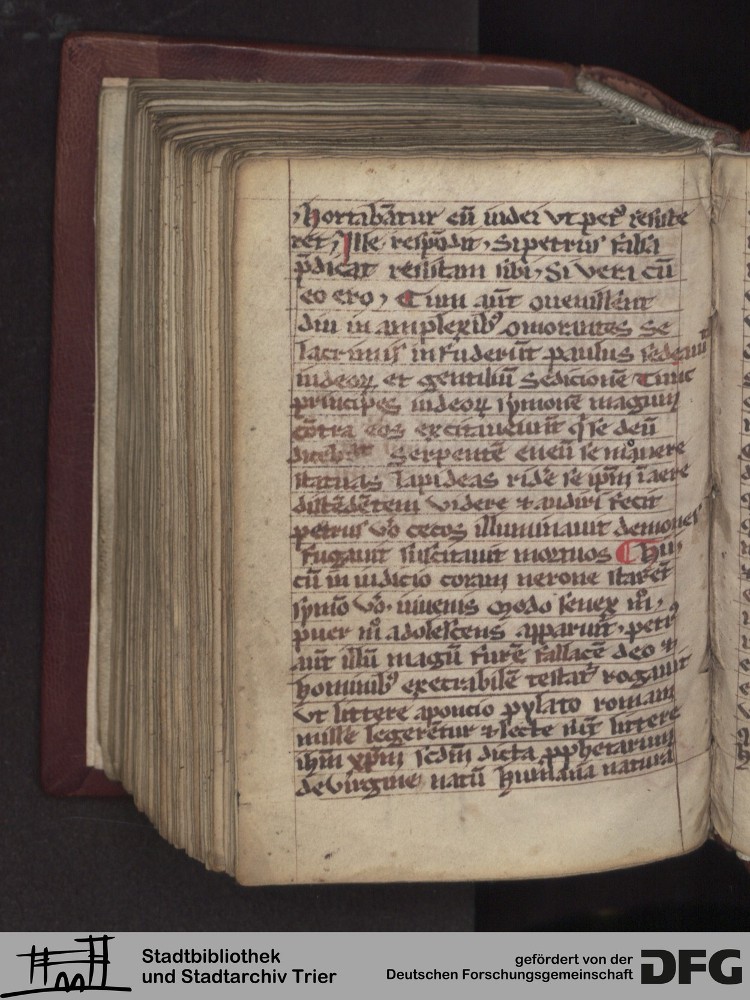 hortabātur eū iudei vt petꝰ resiste
ret, Ille respōdit, Si petrus falsa
p̄dicat resistam sibi, Si vera cū
eo ero, Tum aūt ꝯuenissent
diu in amplexibꝰ ꝯmorantes se
lacrimis infuderūt paulus sedauit
iudeoꝝ et gentiliū Sedicionē Tunc
principes iudeoꝝ symonē magum
cōtra eos excitauerūt se deū
Serpentē eneū se mouere
statuas lapideas ridere se ip̄m ī aere
videre ⁊ audiri fecit
petrus vō cecos illuminauit demones
fugauit suscitauit mortuos
cū in iudicio coram nerone starēt
symō vō iuuenis modo senex
puer adolescens apparuit, petrꝰ
aūt illū magū furē fallacē deo ⁊
hominibꝰ execrabilē testatꝰ rogauit
vt littere a poncio pylato romam
misse legerētur ⁊ lecte sūt littere
ih̄m xp̄m scdm̄ dicta ꝓphetarum
de virgine natū humana natura
Stadtbibliothek
und Stadtarchiv Trier
gefördert von der
Deutschen Forschungsgemeinschaft
DFG